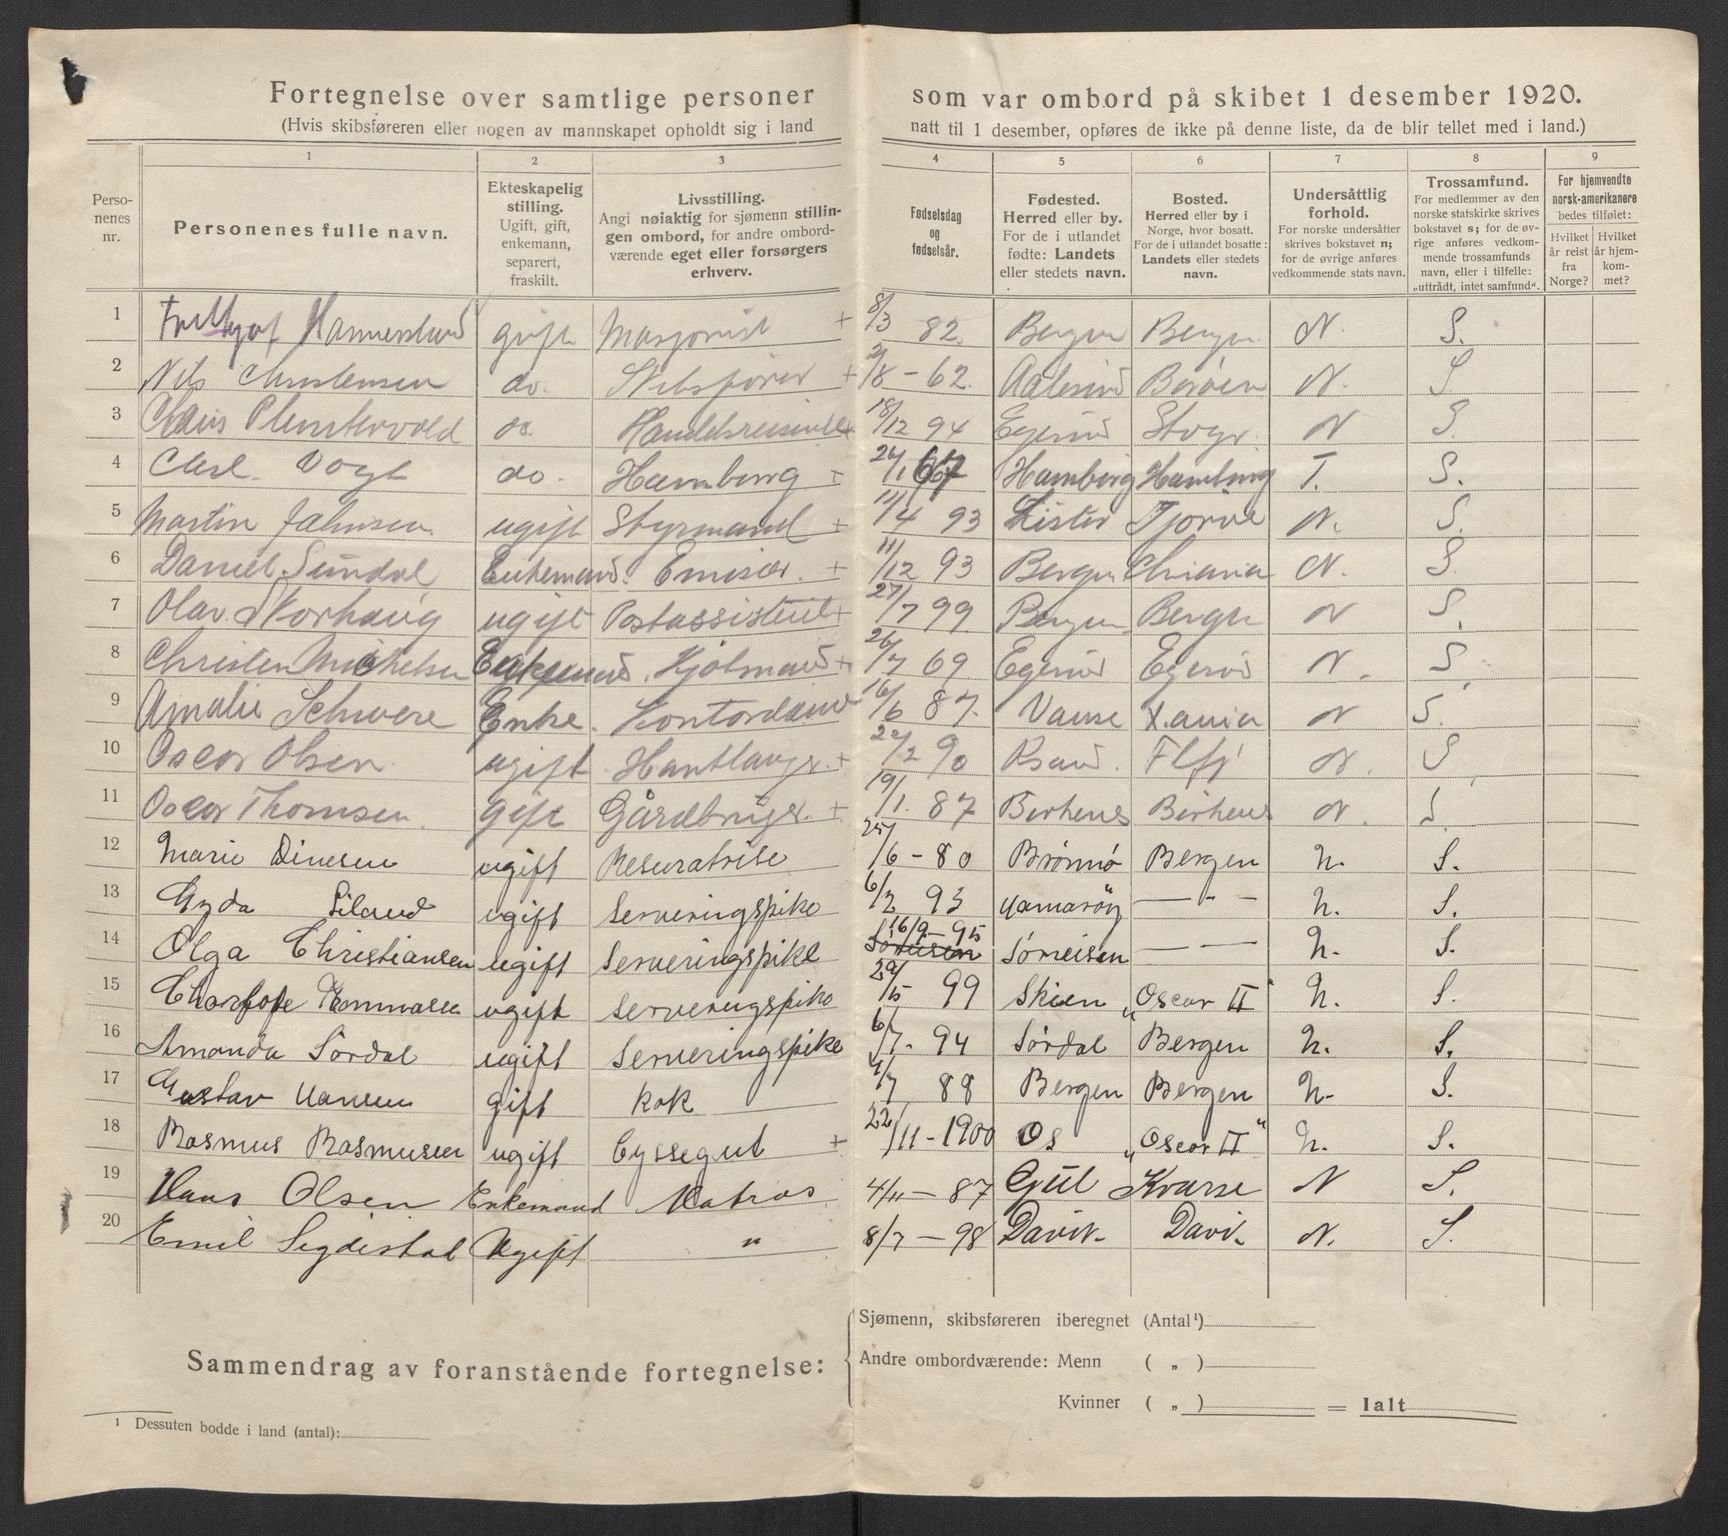 Fortegnelse over samtlige personer som var ombord på skibet 1 desember 1920.
(Hvis skibsføreren eller nogen av mannskapet opholdt sig i land natt til 1 desember, opføres de ikke på denne liste, da de blir tellet med i land.)
1 2 3 4 5 6 7 8 9
Persо-
nenes
nr.
Personenes fulle navn.
Ekteskapelig
stilling.
Ugift, gift,
enkemann,
separert,
fraskilt.
Livsstilling.
Angi nøiaktig for sjømenn stillin-
gen ombord, for andre ombord-
værende eget eller forsørgers
erhverv.
Fødselsdag
og
fødselsår.
Fødested.
Herred eller by.
For de i utlandet
fødte: Landets
eller stedets navn.
Bosted.
Herred eller by i
Norge, hvor bosatt.
For de i utlandet bosatte:
Landets eller stedets
navn.
Undersåttlig
forhold.
For norske undersåtter
skrives bokstavet n;
for de øvrige anføres
vedkommende stats navn.
Trossamfund.
For medlemmer av den
norske statskirke skrives
bokstavet s; for de øv-
rige anføres vedkom-
mende trossamfunds
navn, eller i tilfelle:
„uttrådt, intet samfund“.
For hjemvendte
norsk-amerikanere
bedes tilføiet:
Hvilket
år reist
fra
Norge?
Hvilket
år hjem-
kom-
met?
1 gift Masjonist + 8/3 82. Bergen Bergen N. S.
2 Nils Christensen do. + 2/8 - 62. Aalesund N. S.
3 do. Handelsreisende + 18/12 94 Egersund N S.
4 Carl Vogt do. Hamburg + Hamburg Hamburg T. S.
5 Martin Jahnsen. ugift Styrmand + 11/4 93 Lister N. S.
6 Daniel Sundal Enkemand. Emisær. + 11/12 93 Bergen N. S.
7 Olav Storhaug ugift Postassistent + 27/7 99 Bergen Bergen N S.
8 Christen Michelsen Enkemand. + 26/7 69 Egersund Egersund N. S.
9 Amalie Schwere Enke. Kontordame 16/6 87. Vanse X.ania N S.
10 Oscar Olsen ugift. + 22/2 90 N. S.
11 Oscar Thomsen. gift Gårdbruger. + 19/1. 87 Birkenes Birkenes N. S.
12 Marie Dinesen ugift 25/6 - 80 Brønnø Bergen N. S.
13 Gyda Siland ugift Serveringspike 6/2 93 — " — N. S.
14 Olga Christiansen ugift Serveringspike 16/9 - 95 Sørreisen — — N. S.
15 ugift Serveringspike 99 Skien „Oscar II“ N. S.
16 Amanda Sørdal ugift Serveringspike 6/7. 94 Sørdal Bergen N. S.
17 Gustav Hansen gift Kok 4/7 88 Bergen Bergen N. S.
18 Rasmus Rasmusen ugift Cyssegut + 22/11 - 1900 Os „Oscar II“ N. S.
19 Hans Olsen Enkemand Matros 4/11 - 87 N S.
20 Emil Ugift " 8/7 - 98 Davik Davik N. S.
Sammendrag av foranstående fortegnelse:
Sjømenn, skibsføreren iberegnet (Antal¹)
Andre ombordværende: Menn ( „ )
Kvinner ( „ ) = Ialt
¹ Dessuten bodde i land (antal):